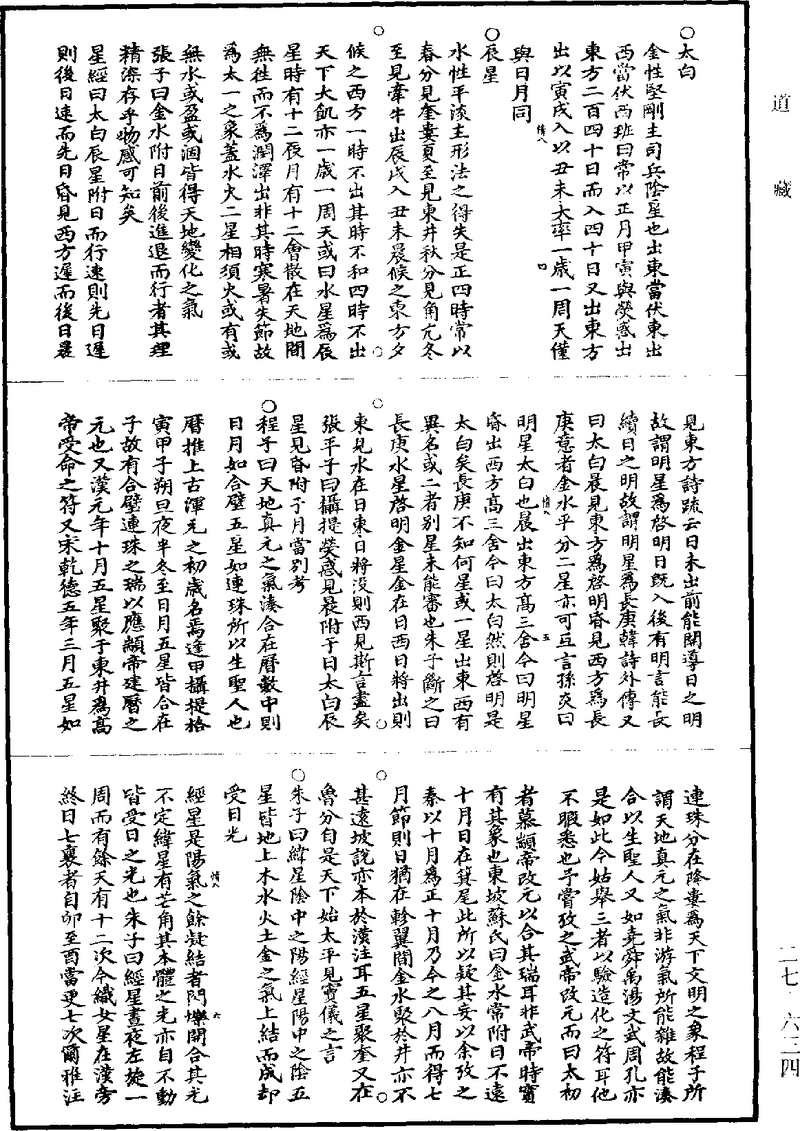 道藏
○太白
金性堅剛主司兵陰星也出東當伏東出
西當伏西班曰常以正月甲寅與熒惑出
東方二百四十日而入四十日又出東方
出以寅戌入以丑未大率一歲一周天僅
與日月同
○辰星
水性平滌主形法之得失是正四時常以
春分見奎婁夏至見東井秋分見角亢冬
至見牽牛出辰戌入丑未晨候之東方夕
候之西方一時不出其時不和四時不出
天下大飢亦一歲一周天或曰水星爲辰
星時有十二辰月有十二會散在天地間
無徃而不爲潤澤出非其時寒暑失節故
爲太一之象蓋水火二星相須火或有或
無水或盈或涸皆得天地變化之氣
張子曰金水附日前後進退而行者其理
精深存乎物感可知矣
星經曰太白辰星附日而行速則先日遲
則後日速而先日昏見西方遲而後日晨
見東方詩疏云日未出前能開導日之明
故謂明星爲啓明日旣入後有明言能長
續日之明故謂明星爲長庚韓詩外傳又
曰太白晨見東方爲啓明昏見西方爲長
庚意者金水乎分二星亦可互言孫炎曰
明星太白也晨出東方高三舍今曰明星
昏出西方高三舍今曰太白然則啓明是
太白矣長庚不知何星或一星出東西有
異名或二者別星未能審也朱子斷之曰
長庚水星啓明金星金在日西日將出則
東見水在日東日將沒則西見斯言盡矣
張平子曰攝提熒惑見晨附于日太白辰
星見昏附于月當別考
○程子曰天地真元之氣湊合在曆數中則
日月如合璧五星如連珠所以生聖人也
曆推上古渾元之初歲名焉逢甲攝提格
寅甲子朔旦夜半冬至日月五星皆合在
子故有合璧連珠之瑞以應顓帝建曆之
元也又漢元年十月五星聚于東井爲高
帝受命之符又宋乾德五年三月五星如
連珠分在降婁爲天下文明之象程子所
謂天地真元之氣非游氣所能雜故能湊
合以生聖人又如堯舜禹湯文武周孔亦
是如此今姑舉三者以驗造化之符耳他
不暇悉也予嘗攷之武帝改元而曰太初
者慕顓帝改元以合其瑞耳非武帝時實
有其象也東坡蘇氏曰金水常附日不遠
十月日在箕尾此所以疑其妄以余攷之
秦以十月爲正十月乃今之八月而得七
月節則日猶在軫翼間金水聚於井亦不
甚遠坡說亦本於漢注耳五星聚奎又在
魯分自是天下始太平見竇儀之言
○朱子曰緯星陰中之陽經星陽中之陰五
星皆地上木水火土金之氣上結而成却
受日光
經星是陽氣之餘凝結者閃爍開合其光
不定緯星有芒角其本體之光亦自不動
皆受日之光也朱子曰經星晝夜左旋一
周而有餘天有十二次今織女星在漢旁
終日七襄者自卯至酉當更七次爾雅注
二七·六三四